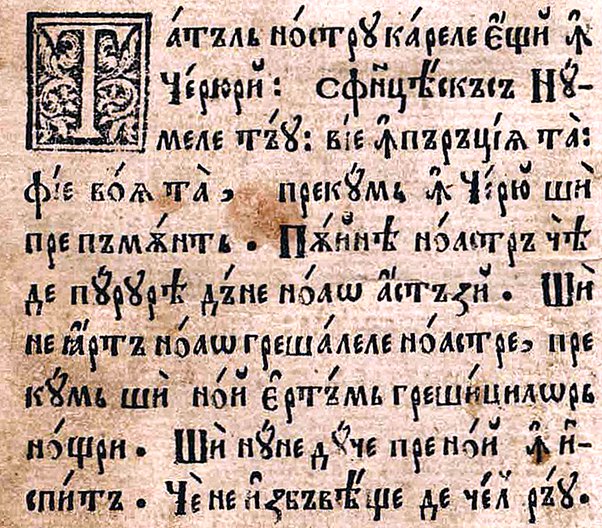 Та́тъль но́стрꙋ ка́реле є҆́щй ꙟ҆
Че́рюрй: сфн҃цѣ́скъсъ Нꙋ́-
меле тъ́ꙋ: ві́е ꙟ҆пъръці́ѧ та̀:
фі́е во́ѧ та̀, прекꙋ́мь ꙟ҆ Че́рю шѝ
пре пъмѫ́нть. Пѫ́йнѣ ноа́стръ чѣ̀
де пꙋ́рꙋрѣ дъ́не но́аѡ а҆́стъꙁй. Шѝ
не ꙗ҆́ртъ но́аѡ греша́леле ноа́стре, пре
кꙋ́мь шѝ но́й є҆ртъ́мь греши́цилѡрь
но́щри. Шѝ нꙋ́не дꙋ́че пре но́й ꙟ҆ и҆-
спи́тъ. Чѐ не и҆ꙁбъвѣ́ще де че́л ръ́ꙋ.